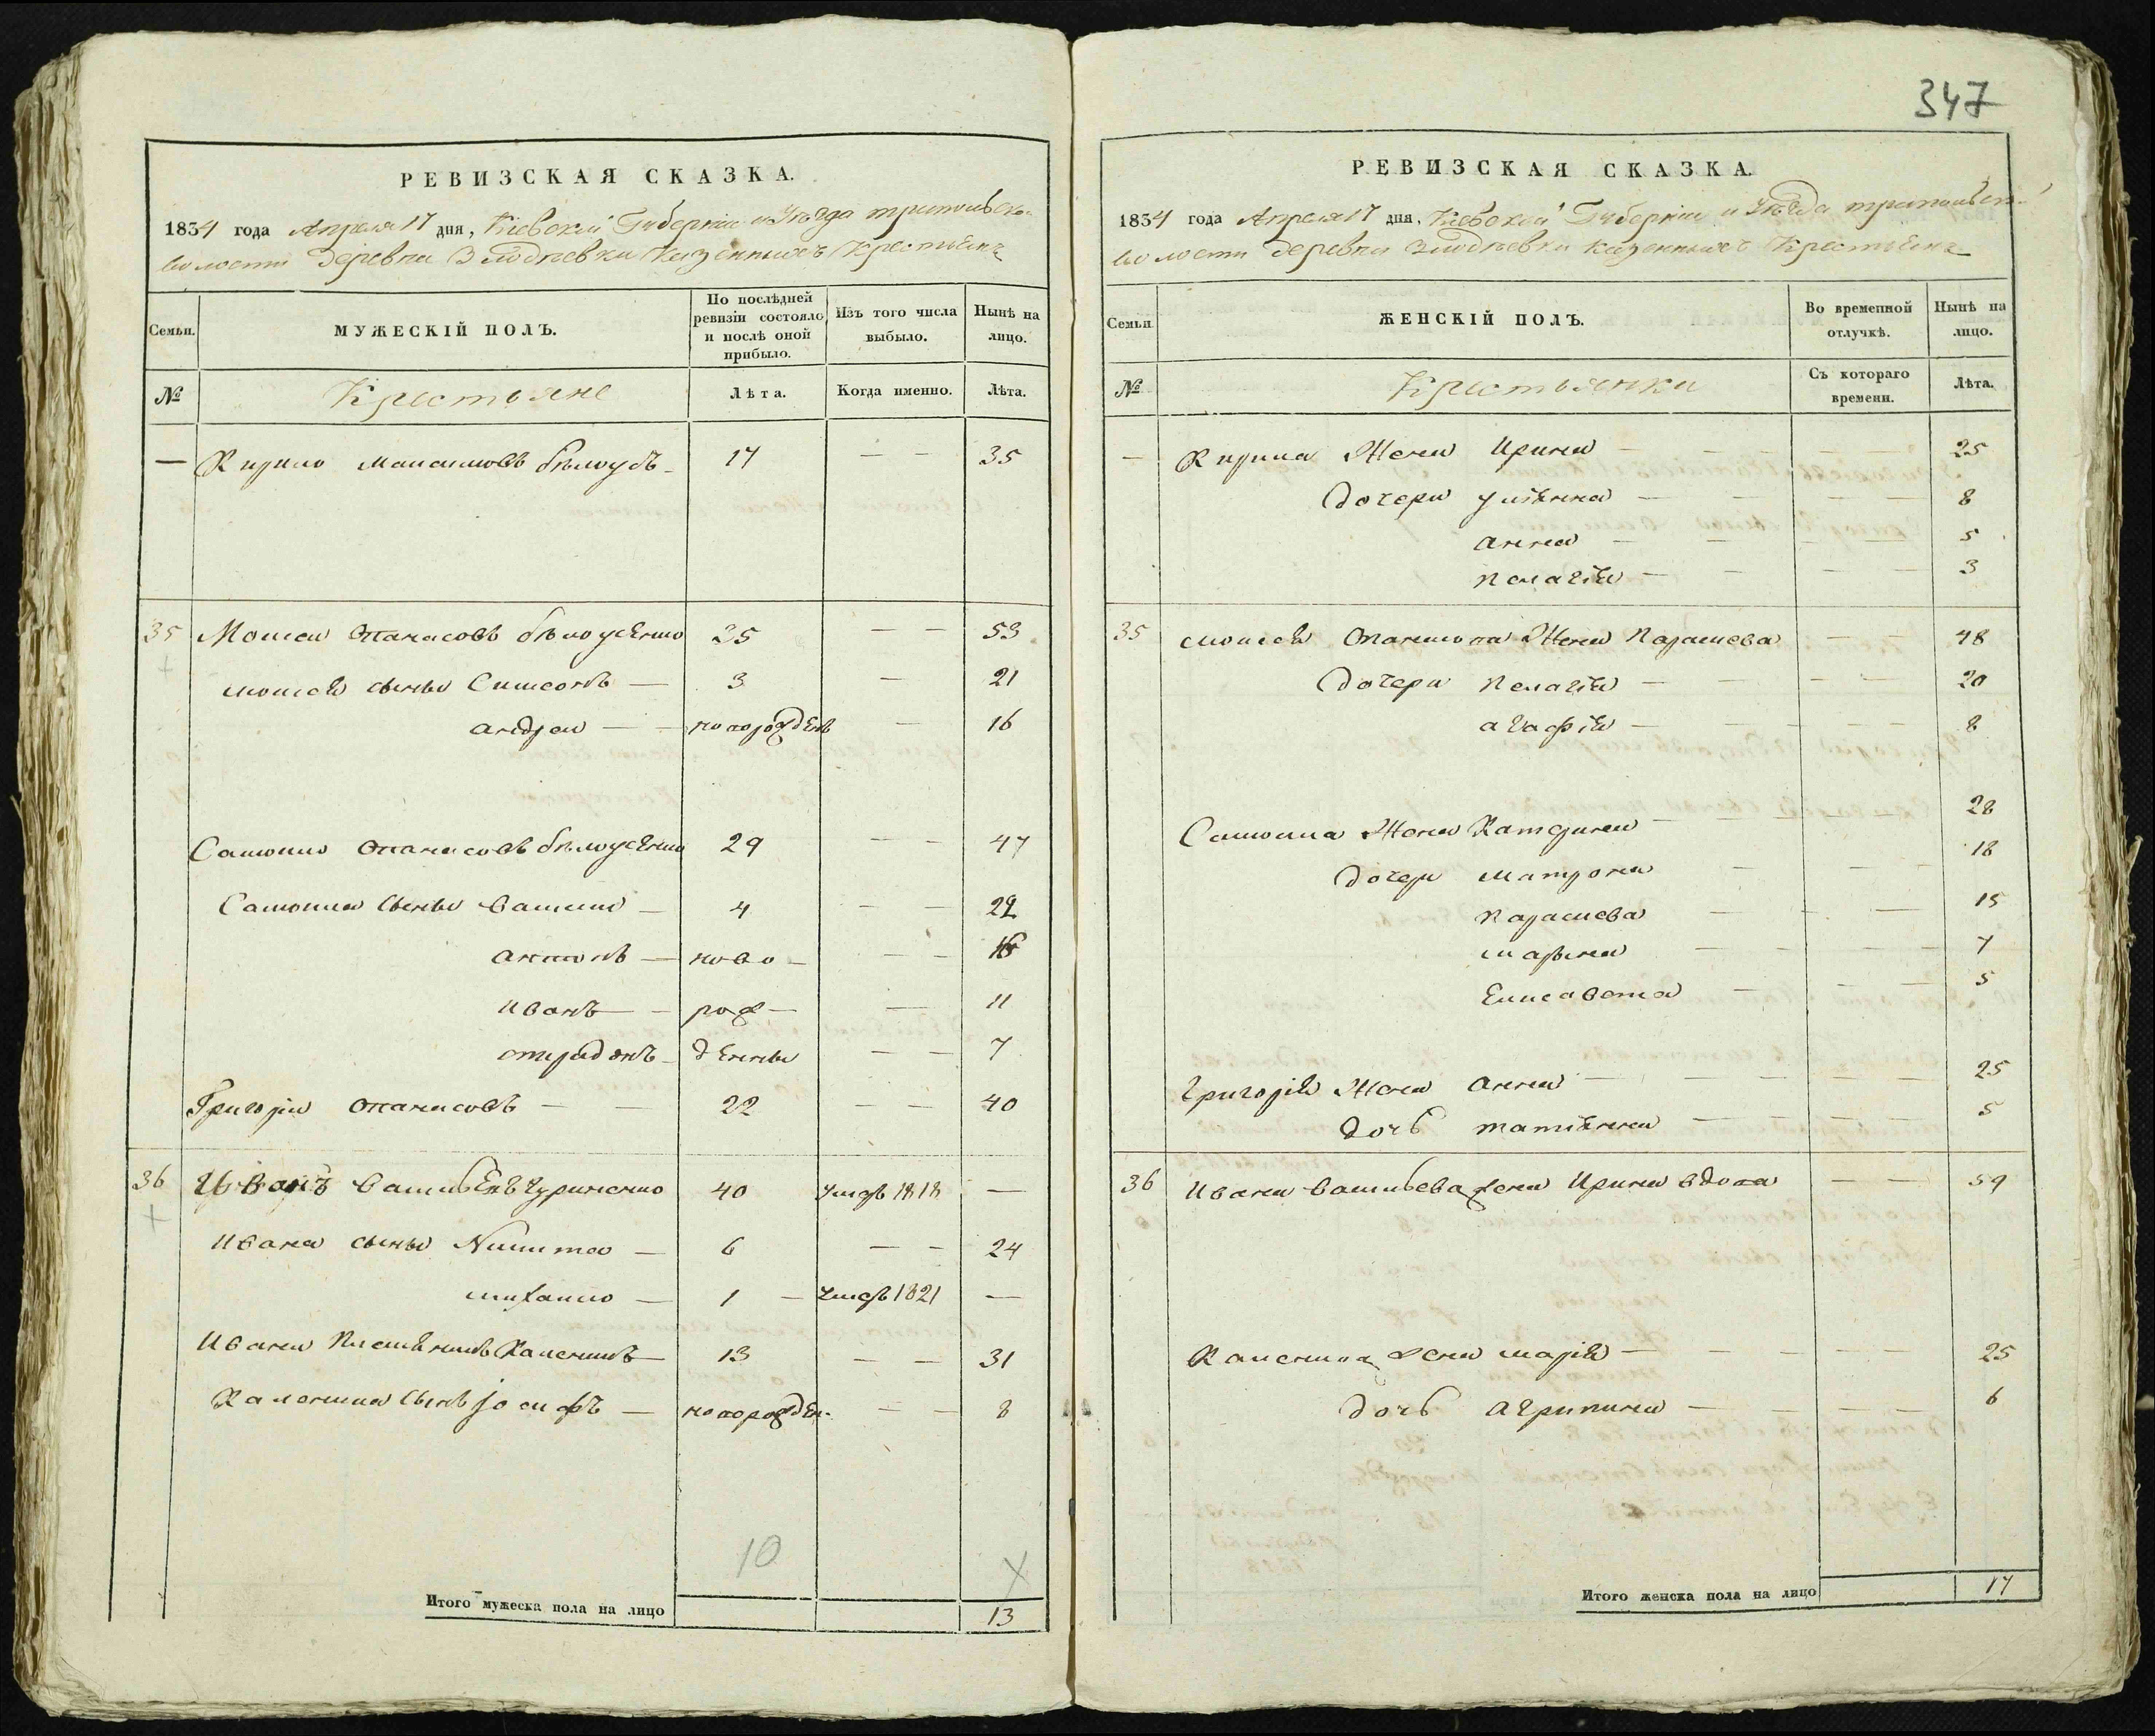 347
РЕВИЗСКАЯ СКАЗКА.
1834 года Апреля 17 дня, Кіевской Губерніи и Уѣзда трипольско-
волости деревни Злодѣевки Казенныхъ Крестьянъ
Семьи.
МУЖЕСКІЙ ПОЛЪ.
По послѣдней ревизіи состояло и послѣ оной прибыло.
Изъ того числа выбыло.
Нынѣ на лицо.
№ Крестьяне Лѣта. Когда именно. Лѣта.
— Кирило Максимовъ бѣлоусъ 17 — — 35
35 Моисеи Опанасовъ бѣлоусенко 35 — — 53
моисея сыны Симеонъ — 3 — 21
андреи — — новорожденъ — 16
Самоило Опанасовъ бѣлоусенко 29 — — 47
Самоила сыны василий — 4 — — 22
антонъ — ново — — — 16
иванъ — рож — — 11
спиридонъ — денны — — 7
Григори Опанасовъ — — 22 — — 40
36 Иванъ васильевъ Чуриненко 40 умеръ 1818 —
ивана сыны Никита — 6 — — 24
михаило — 1 — умеръ 1821 —
ивана племянникъ Каленикъ — 13 — — 31
Каленика сынъ іосифъ — новорожден. — — 8
10
Итого мужеска пола на лицо 13
РЕВИЗСКАЯ СКАЗКА.
1834 года Апреля 17 дня, Кіевской Губерніи и Уѣзда трипольск-
волости деревни Злодѣевки казенныхъ Крестьянъ
Семьи.
ЖЕНСКІЙ ПОЛЪ.
Во временной отлучкѣ.
Нынѣ на лицо.
№ Крестьянки Съ котораго времени. Лѣта.
— Кирила Жена Ирина — — — 25
дочери уліяна — — — — 8
анна — — — — 5
пелагія — — — — 3
35 моисея Опанасова Жена Параскева — — 48
дочери пелагія — — — — 20
агафія — — — — 8
Самоила Жена Катерина — — — 28
дочери матрона — — — 18
параскева — — — 15
марина — — — 7
Елисавета — — — 5
григорія Жена анна — — — — 25
дочь татіянна — — — — 5
36 Ивана васильева жена Ирина вдова — — 59
Каленика жена марія — — — — 25
дочь агрипина — — — — 6
Итого женска пола на лицо 17